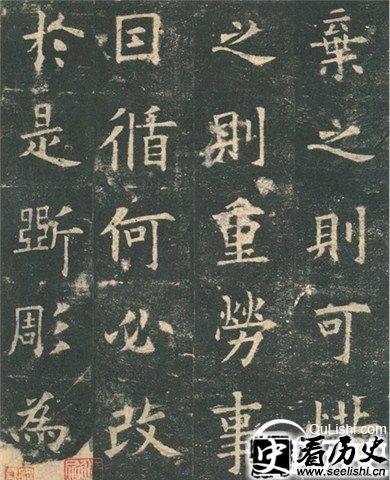 棄之則可惜
之則重勞事
囙循何必改
於是斵彫為
QuLishi.com
史看历史
www.seelishi.com